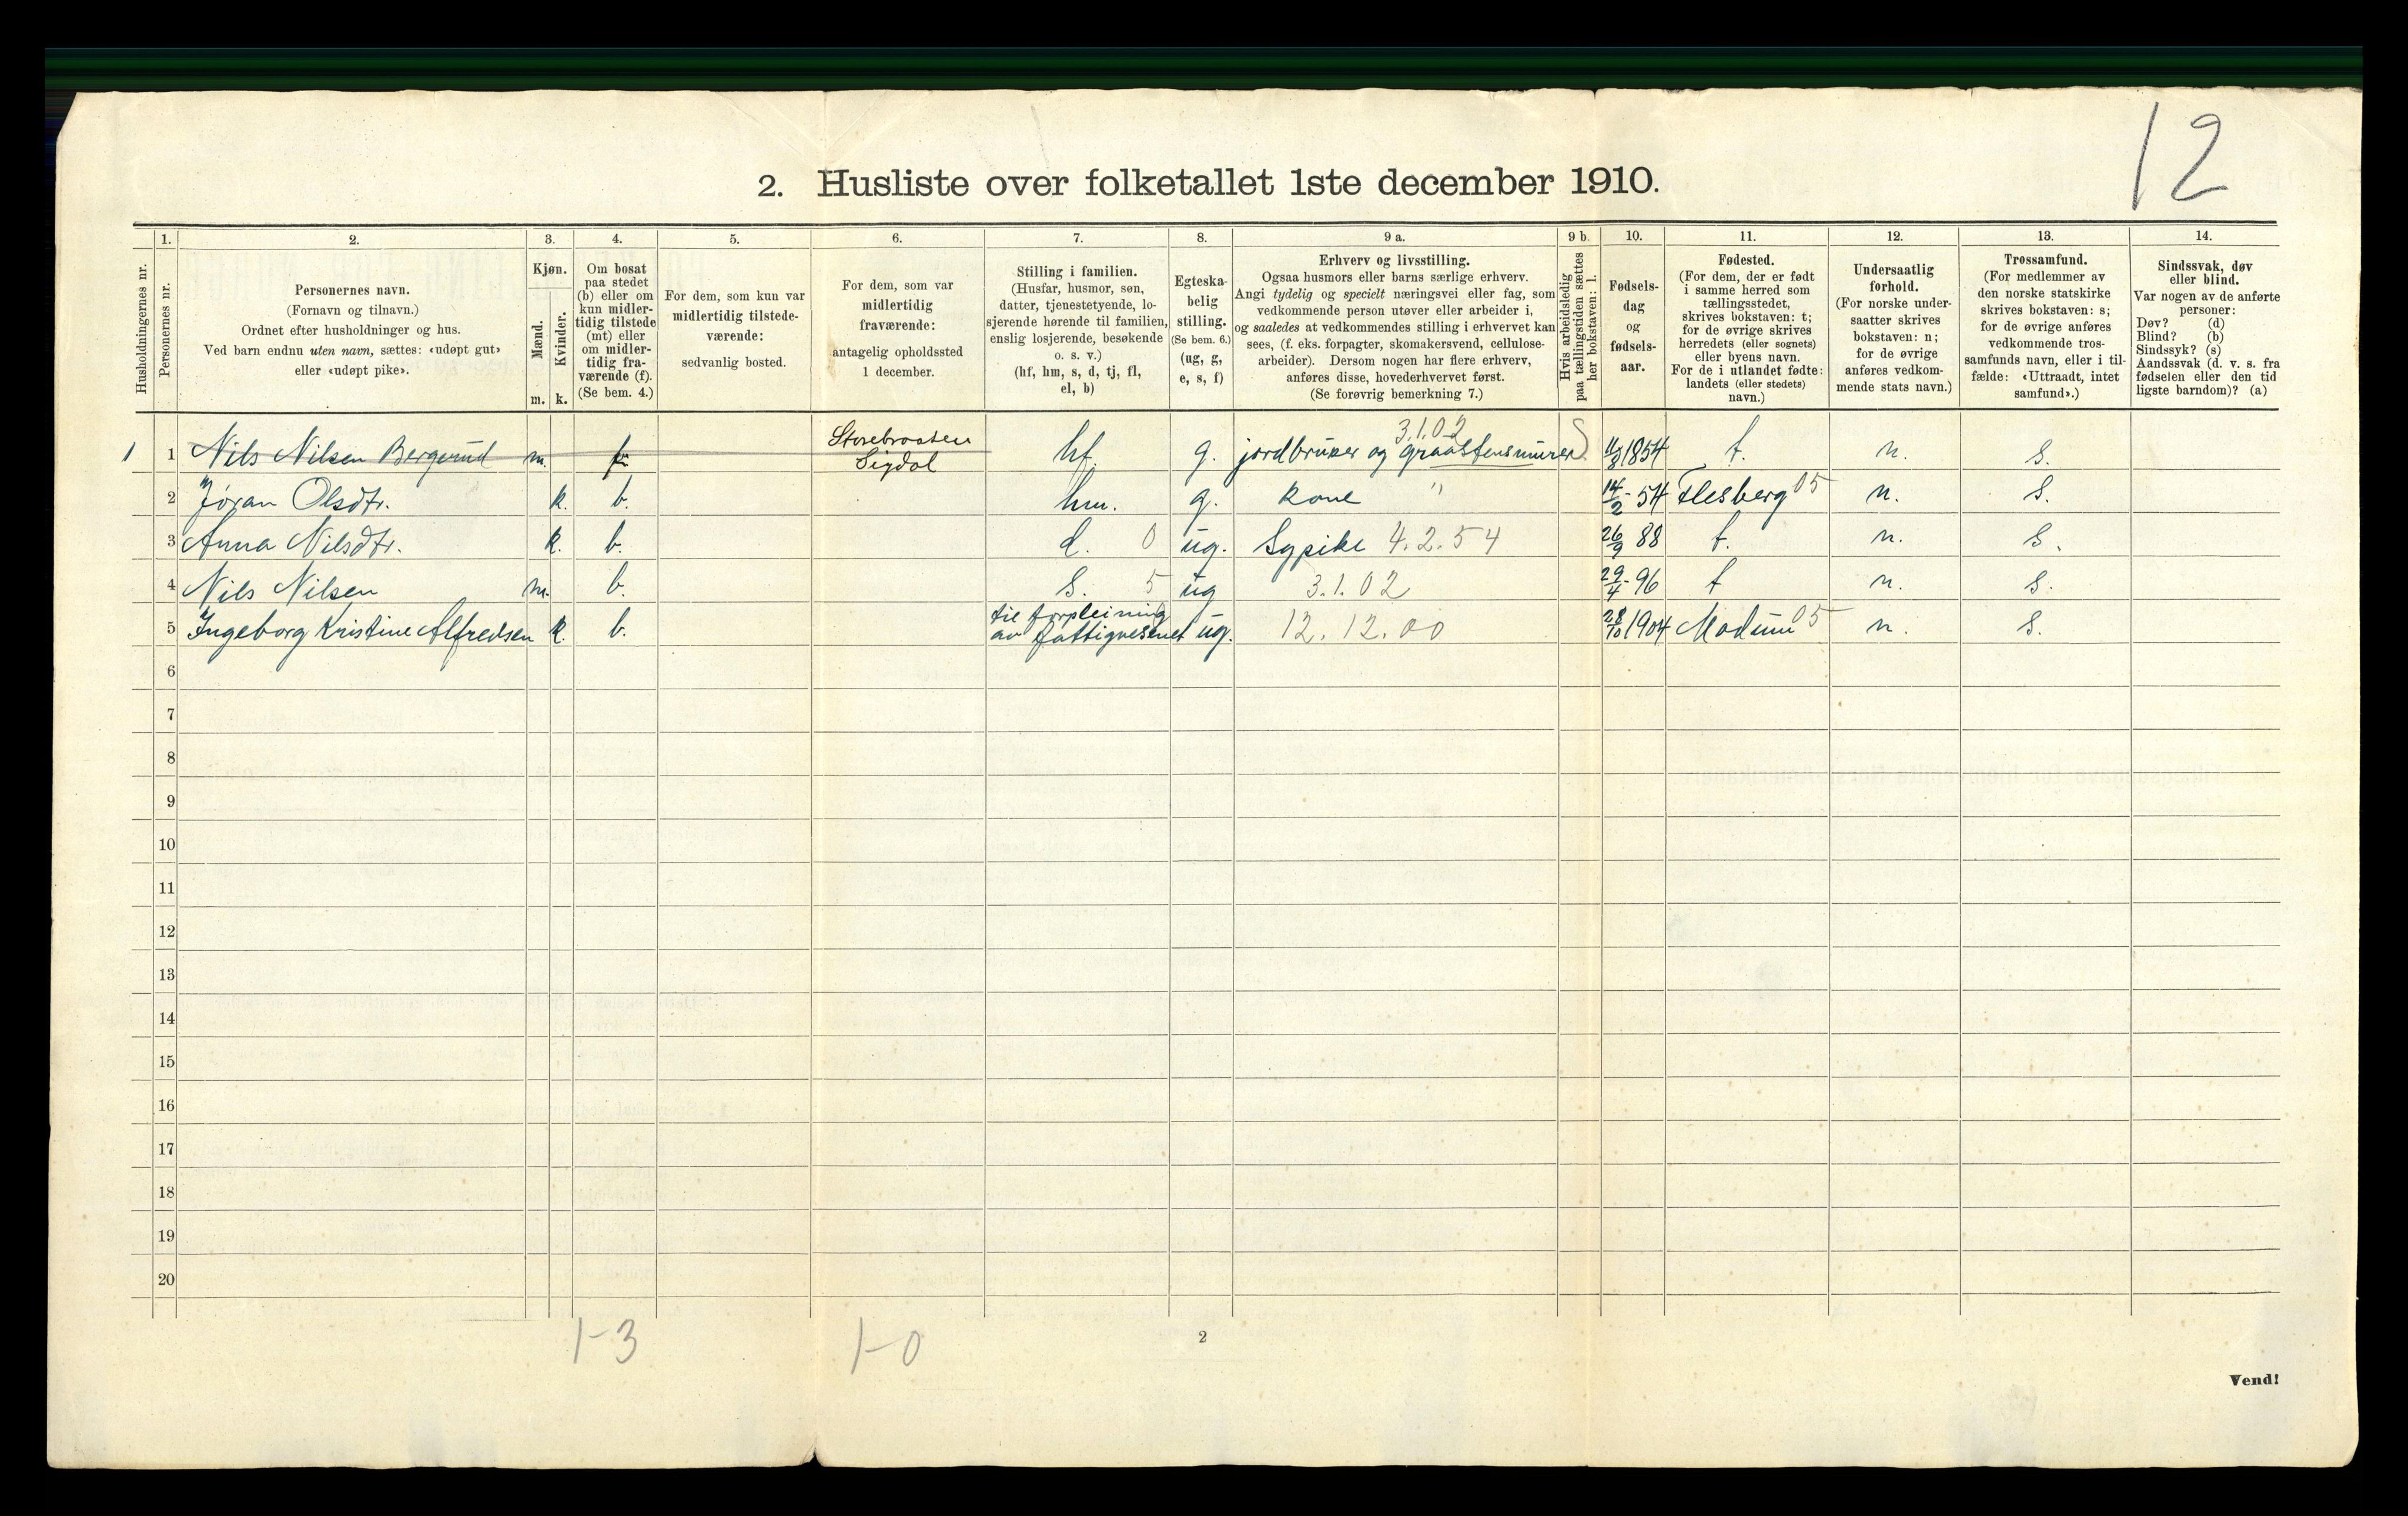 12
2. Husliste over folketallet 1ste december 1910.
Husholdningernes nr.
1.
Personernes nr.
2.
Personernes navn.
(Fornavn og tilnavn.)
Ordnet efter husholdninger og hus.
Ved barn endnu uten navn, sættes: «udøpt gut»
eller «udøpt pike».
3.
Kjøn.
Mænd.
Kvinder.
m. k.
4.
Om bosat
paa stedet
(b) eller om
kun midler-
tidig tilstede
(mt) eller
om midler-
tidig fra-
værende (f).
(Se bem. 4.)
5.
For dem, som kun var
midlertidig tilstede-
værende:
sedvanlig bosted.
6.
For dem, som var
midlertidig
fraværende:
antagelig opholdssted
1 december.
7.
Stilling i familien.
(Husfar, husmor, søn,
datter, tjenestetyende, lo-
sjerende hørende til familien,
enslig losjerende, besøkende
o. s. v.)
(hf, hm, s, d, tj, fl,
el, b)
8.
Egteska-
belig
stilling.
(Se bem. 6.)
(ug, g,
e, s, f)
9 a.
Erhverv og livsstilling.
Ogsaa husmors eller barns særlige erhverv.
Angi tydelig og specielt næringsvei eller fag, som
vedkommende person utøver eller arbeider i,
og saaledes at vedkommendes stilling i erhvervet kan
sees, (f. eks. forpagter, skomakersvend, cellulose-
arbeider). Dersom nogen har flere erhverv,
anføres disse, hovederhvervet først.
(Se forøvrig bemerkning 7.)
9 b.
Hvis arbeidsledig
paa tællingstiden sættes
her bokstaven: l.
10.
Fødsels-
dag
og
fødsels-
aar.
11.
Fødested.
(For dem, der er født
i samme herred som
tællingsstedet,
skrives bokstaven: t;
for de øvrige skrives
herredets (eller sognets)
eller byens navn.
For de i utlandet fødte:
landets (eller stedets)
navn.)
12.
Undersaatlig
forhold.
(For norske under-
saatter skrives
bokstaven: n;
for de øvrige
anføres vedkom-
mende stats navn.)
13.
Trossamfund.
(For medlemmer av
den norske statskirke
skrives bokstaven: s;
for de øvrige anføres
vedkommende tros-
samfunds navn, eller i til-
fælde: «Uttraadt, intet
samfund».)
14.
Sindssvak, døv
eller blind.
Var nogen av de anførte
personer:
Døv? (d)
Blind? (b)
Sindssyk? (s)
Aandssvak (d. v. s. fra
fødselen eller den tid
ligste barndom)? (a)
Storebraaten 3.1.02
1 1 Nils Nilsen Bergerud m. f. Sigdal hf. g. jordbruker og graastensmurer 11/8 1854 t. n. s.
2 Jøran Olsdtr. k. b. hm. g. kone " 14/2 - 54 Flesberg 05 n. s.
3 Anna Nilsdtr. k. b. d. 0 ug. Sypike 4.2.54 26/9 88 t. n. s.
4 Nils Nilsen m. b. s. 5 ug 3.1.02 29/4 - 96 t n. s.
til forpleining
5 Ingeborg Kristine Alfredsen k. b. av fattigvesenet ug. 12.12.00 28/10 1904 Modum 05 n. s.
6
7
8
9
10
11
12
13
14
15
16
17
18
19
20
1-3 1-0 2
Vend!